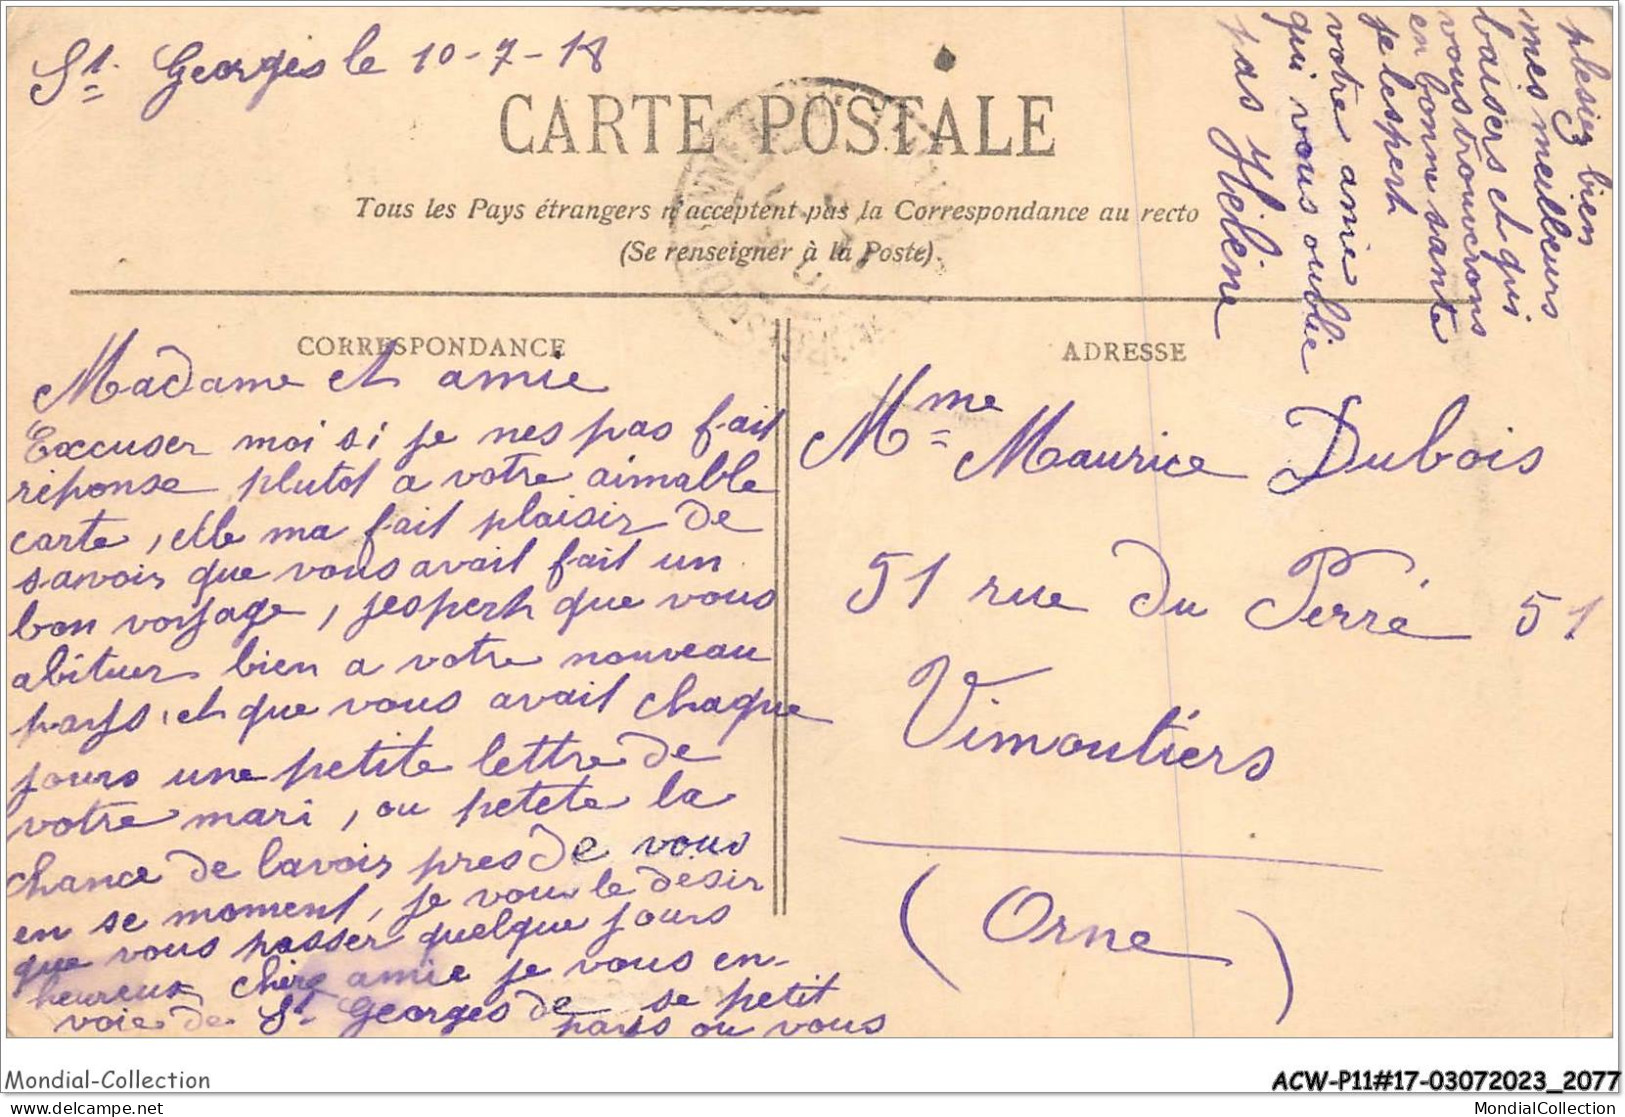 St Georges le 10-7-18
CARTE POSTALE
Tous les Pays étrangers n'acceptent pas la Correspondance au recto
(Se renseigner à la Poste).
CORRESPONDANCE
Madame et amie
Excuser moi si je nes pas fait
réponse plutot a votre aimable
carte, elle ma fait plaisir de
savoir que vous avait fait un
bon voyage, jespert que vous
abituer bien a votre nouveau
pays, et que vous avait chaque
jours une petite lettre de
votre mari, ou petete la
chance de lavoir pres de vous
en se moment, je vous le desir
que vous passer quelque jours
heureux chère amie je vous en-
voie de St Georges de se petit
pays ou vous
plesiez bien
mes meilleurs
baisers et qui
vous trouverons
en bonne sante
je lespert
votre amie
qui vous oublie
pas Helene
ADRESSE
Mme Maurice Dubois
51 rue du Perré 51
Vimoutiers
(Orne)
Mondial-Collection
ACW-P11#17-03072023_2077
delcampe.net
MondialCollection